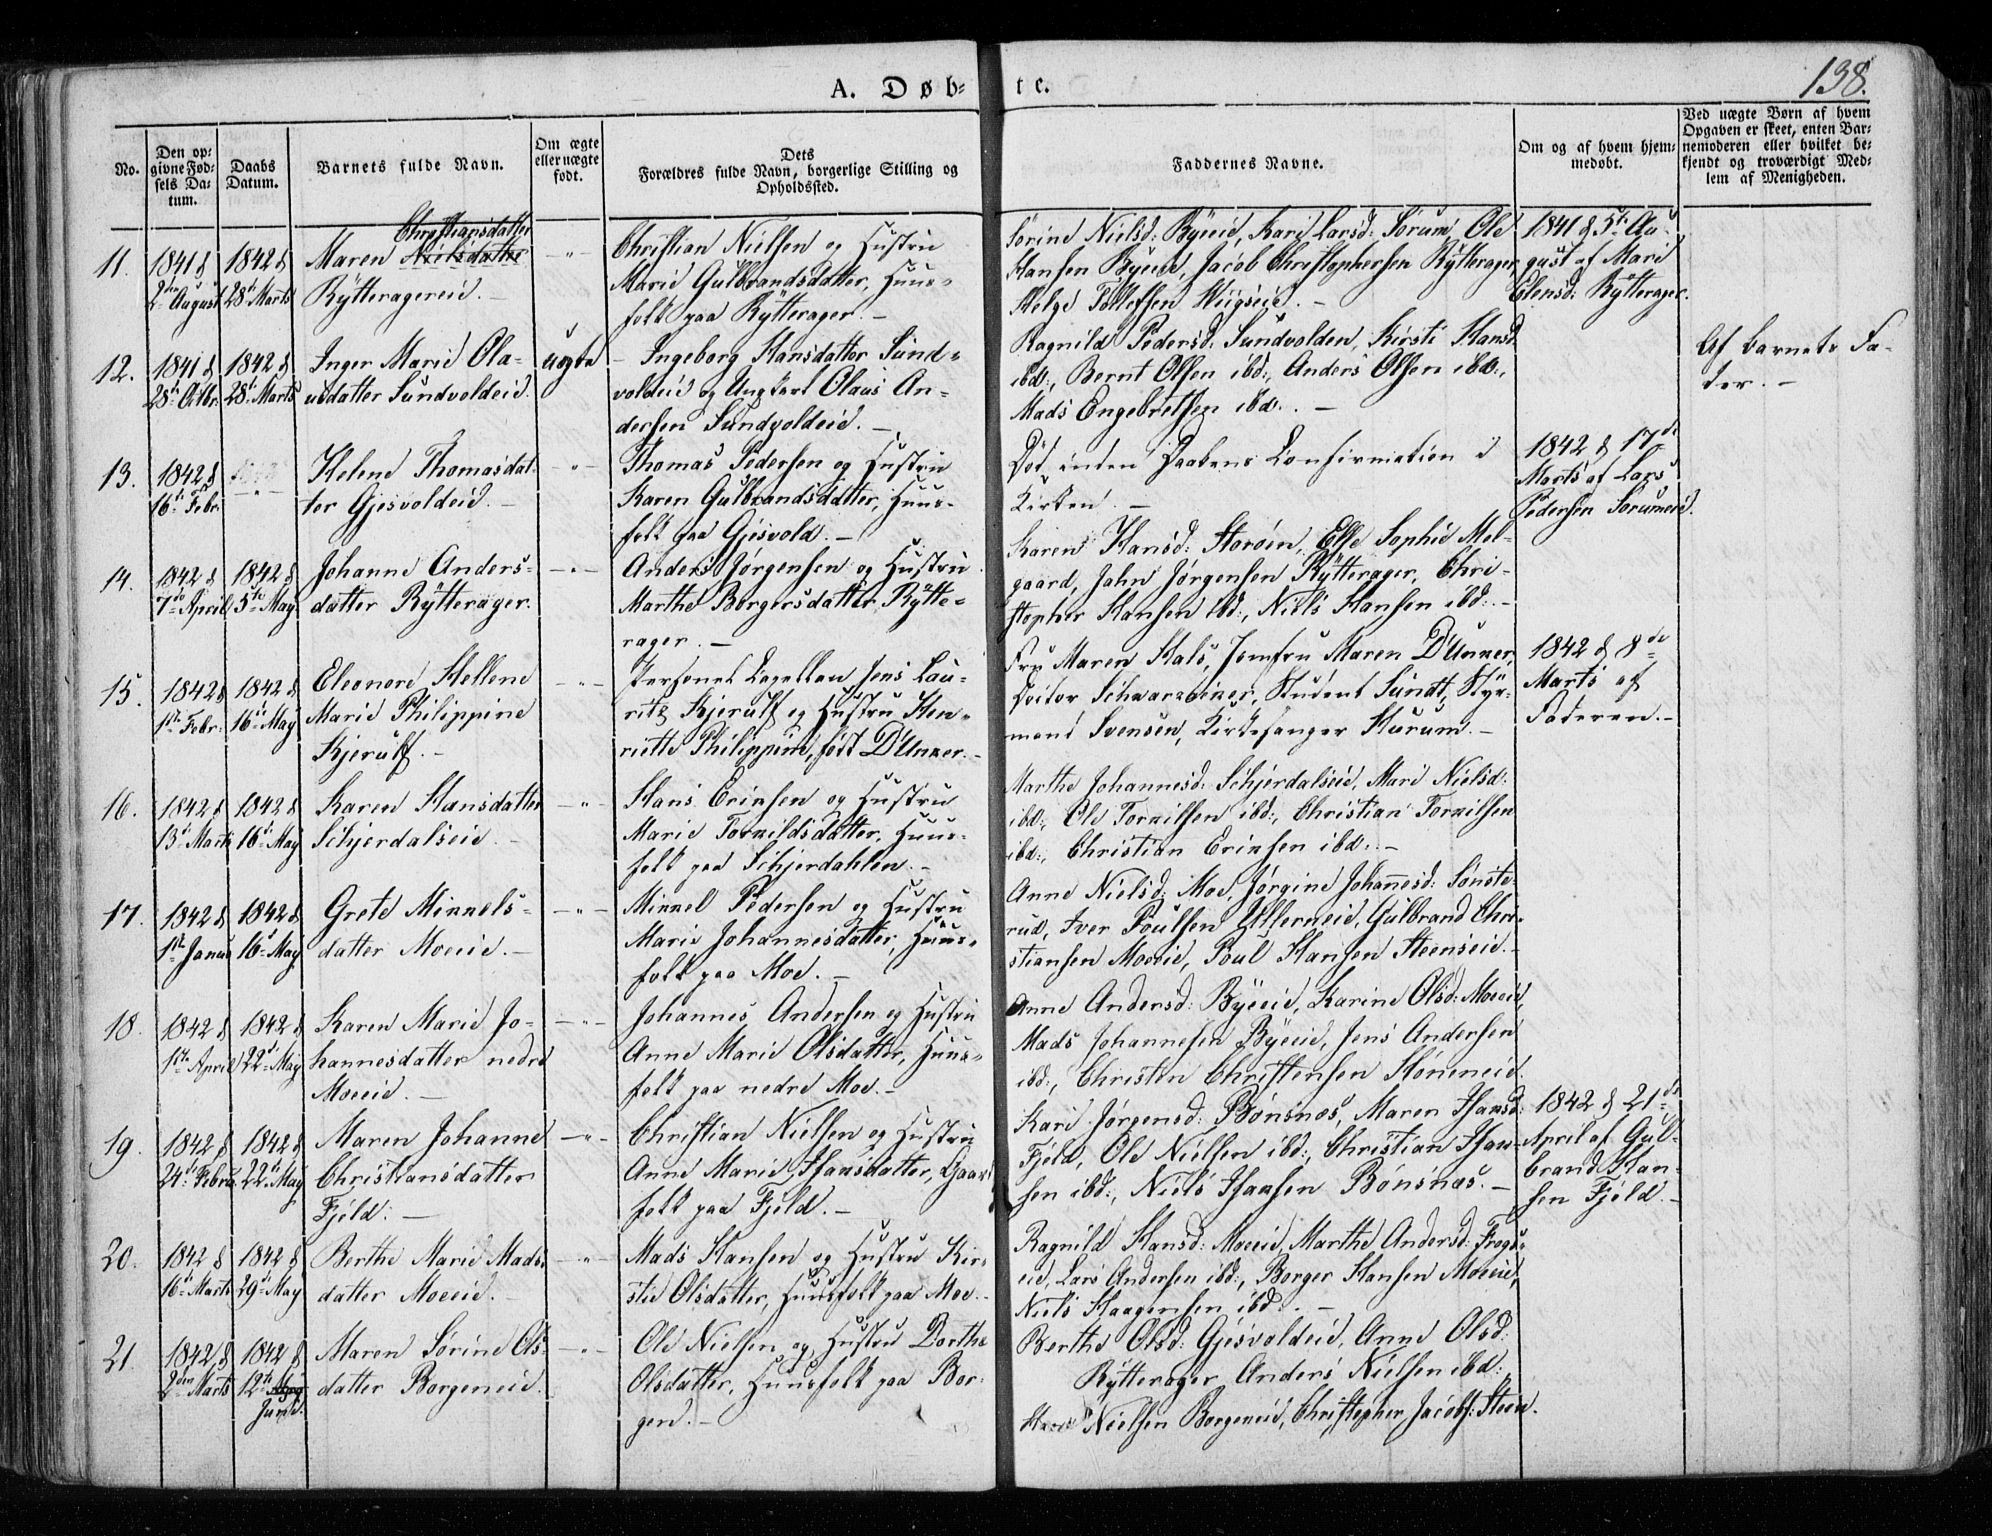 138.
A. Døb-
te.
No.
Den op-
givne Fød-
sels Da-
tum.
Daabs
Datum.
Barnets fulde Navn.
Om ægte
eller uægte
født.
Dets
Forældres fulde Navn, borgerlige Stilling og
Opholdssted.
Faddernes Navne.
Om og af hvem hjem-
medøbt.
Ved uægte Børn af hvem
Opgaven er skeet, enten Bar-
nemoderen eller hvilket be-
kjendt og troværdigt Med-
lem af Menigheden.
11.
1841 d
2den August
1842 d
28de Marts
Christiansdatter
Maren Nielsdatter
Rÿtteragereid.
Christian Nielsen og Hustru
Marie Gulbrandsdatter, Huus-
folk paa Rÿtterager.
Sørine Nielsd: Bÿeeid, Kari Larsd: Sørum, Ole
Hansen Bÿeeid, Jacob Christophersen Rÿtterager,
Helge Tollefsen Wiigseid.
1841 d 5te Au-
gust af Mari
Elensd: Rÿtterager.
12.
1841 d
28de Octbr.
1842 d
28de Marts
Inger Marie Ola-
usdatter Sundvoldeid.
uægte
Ingeborg Hansdatter Sund-
voldeid og Ungkarl Olaus An-
dersen Sundvoldeid.
Ragnild Pedersd. Sundvolden, Kirsti Hansd
ibd:, Bernt Olsen ibd:, Anders Olsen ibd:,
Mads Engebretsen ibd.
Af barnets Fa-
der.
13.
1842 d
16de Febr.
Helene Thomasdat-
ter Gjesvoldeid.
Thomas Pedersen og Hustru
Karen Gulbrandsdatter, Huus-
folk paa Gjesvold.
Død inden Daabens Confirmation i
Kirken.
1842 d 17de
Marts af Lars
Pedersen Sørumeid.
14.
1842 d
7de April
1842 d
5te May
Johanne Anders-
datter Rÿtterager.
Anders Jørgensen og Hustru
Marthe Borgersdatter, Rÿtte-
rager.
Karen Hansd: Storøen, Else Sophie Mel-
gaard, John Jørgensen Rÿtterager, Chri-
stopher Hansen ibd:, Niels Hansen ibd:
15.
1842 d
1ste Febr.
1842 d
16de May
Eleonore Hellene
Marie Philippine
Kjerulf.
Personel Capellan Jens Lau-
ritz Kjerulf og Hustru Hen-
riette Philippine, født D'Unker.
Fru Maren Hals, Jomfru Maren D'Unker,
Doctor Schwarzwitzer, Student Sundt, Styr-
mand Svensen, Kirkesanger Hurum.
1842 d 8de
Marts af
Faderen.
16.
1842 d
13de Marts
1842 d
16de May
Karen Hansdatter
Schjerdalseid.
Hans Erinsen og Hustru
Marie Tornildsdatter, Huus-
folk paa Schjerdahlen.
Marthe Johannesd: Schjerdalseid, Mari Nielsd:
ibd:, Ole Tornilsen ibd:, Christian Tornilsen
ibd:, Christian Erinsen ibd:
17.
1842 d
1ste Janua
1842 d
16de May
Grete Minnels-
datter Moeeid.
Minnel Pedersen og Hustru
Marie Johannesdatter, Huus-
folk paa Moe.
Anne Nielsd: Moe, Jørgine Johannesd: Sønste-
rud, Iver Poulsen Ullerneid, Gulbrand Chri-
stiansen Moeeid, Poul Hansen Steenseid.
18.
1842 d
1ste April
1842 d
22de May
Karen Marie Jo-
hannesdatter nedre
Moeeid.
Johannes Andersen og Hustru
Anne Marie Olsdatter, Huus-
folk paa nedre Moe.
Anne Andersd: Bÿeeid, Karine Olsd: Moeeid,
Mads Johannesen Bÿeeid, Jens Andersen
ibd:, Christen Christensen Hønneneid.
19.
1842 d
24de Febru.
1842 d
22de May
Maren Johanne
Christiansdatter
Fjeld.
Christian Nielsen og Hustru
Anne Marie Hansdatter, Gaard
folk paa Fjeld.
Kari Jørgensd: Bønsnæs, Maren Hansd:
Fjeld, Ole Nielsen ibd:, Christian Han-
sen ibd:, Niels Hansen Bønsnæs.
1842 d 21de
April af Gul-
brand Han-
sen Fjeld.
20.
1842 d
16de Marts
1842 d
29de May
Berthe Marie Mads-
datter Moeeid.
Mads Hansen og Hustru Kir-
stie Olsdatter, Huusfolk paa Moe.
Ragnild Hansd: Moeeid, Marthe Andersd: Frogn-
eid, Lars Andersen ibd:, Borger Hansen Moeeid,
Niels Haagensen ibd.
21.
1842 d
2den Marts
1842 d
12te May
Junii.
Maren Sørine Ols-
datter Borgeneid.
Ole Nielsen og Hustru Dorthe
Olsdatter, Huusfolk paa Bor-
gen.
Berthe Olsd: Gjesvoldeid, Anne Olsd:
Rÿtterager, Anders Nielsen ibd:
Hans Nielsen Borgeneid, Christopher Jacobs: Steen.